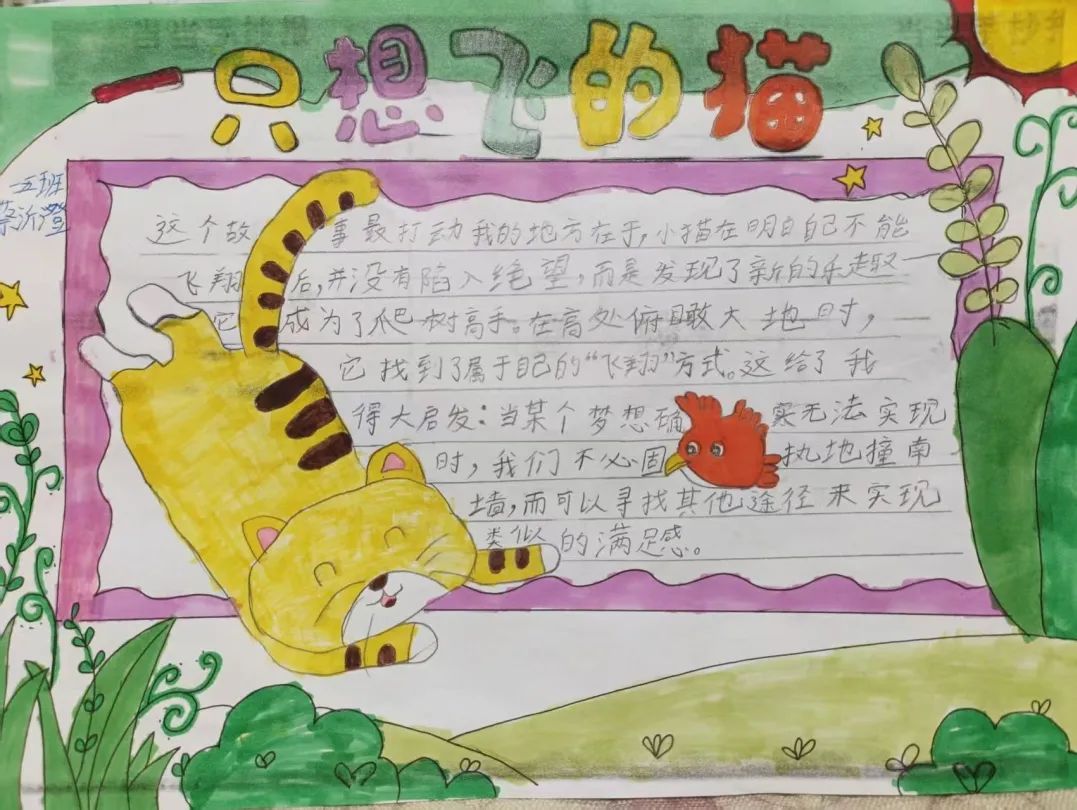 只想飞的猫
五班
蔡沂澄
这个故事最打动我的地方在于,小猫在明白自己不能
飞翔后,并没有陷入绝望,而是发现了新的乐趣一
它成为了爬树高手。在高处俯瞰大地时,
它找到了属于自己的“飞翔”方式。这给了我
得大启发:当某个梦想确实无法实现
时,我们不必固执地撞南
墙,而可以寻找其他途径来实现
类似的满足感。